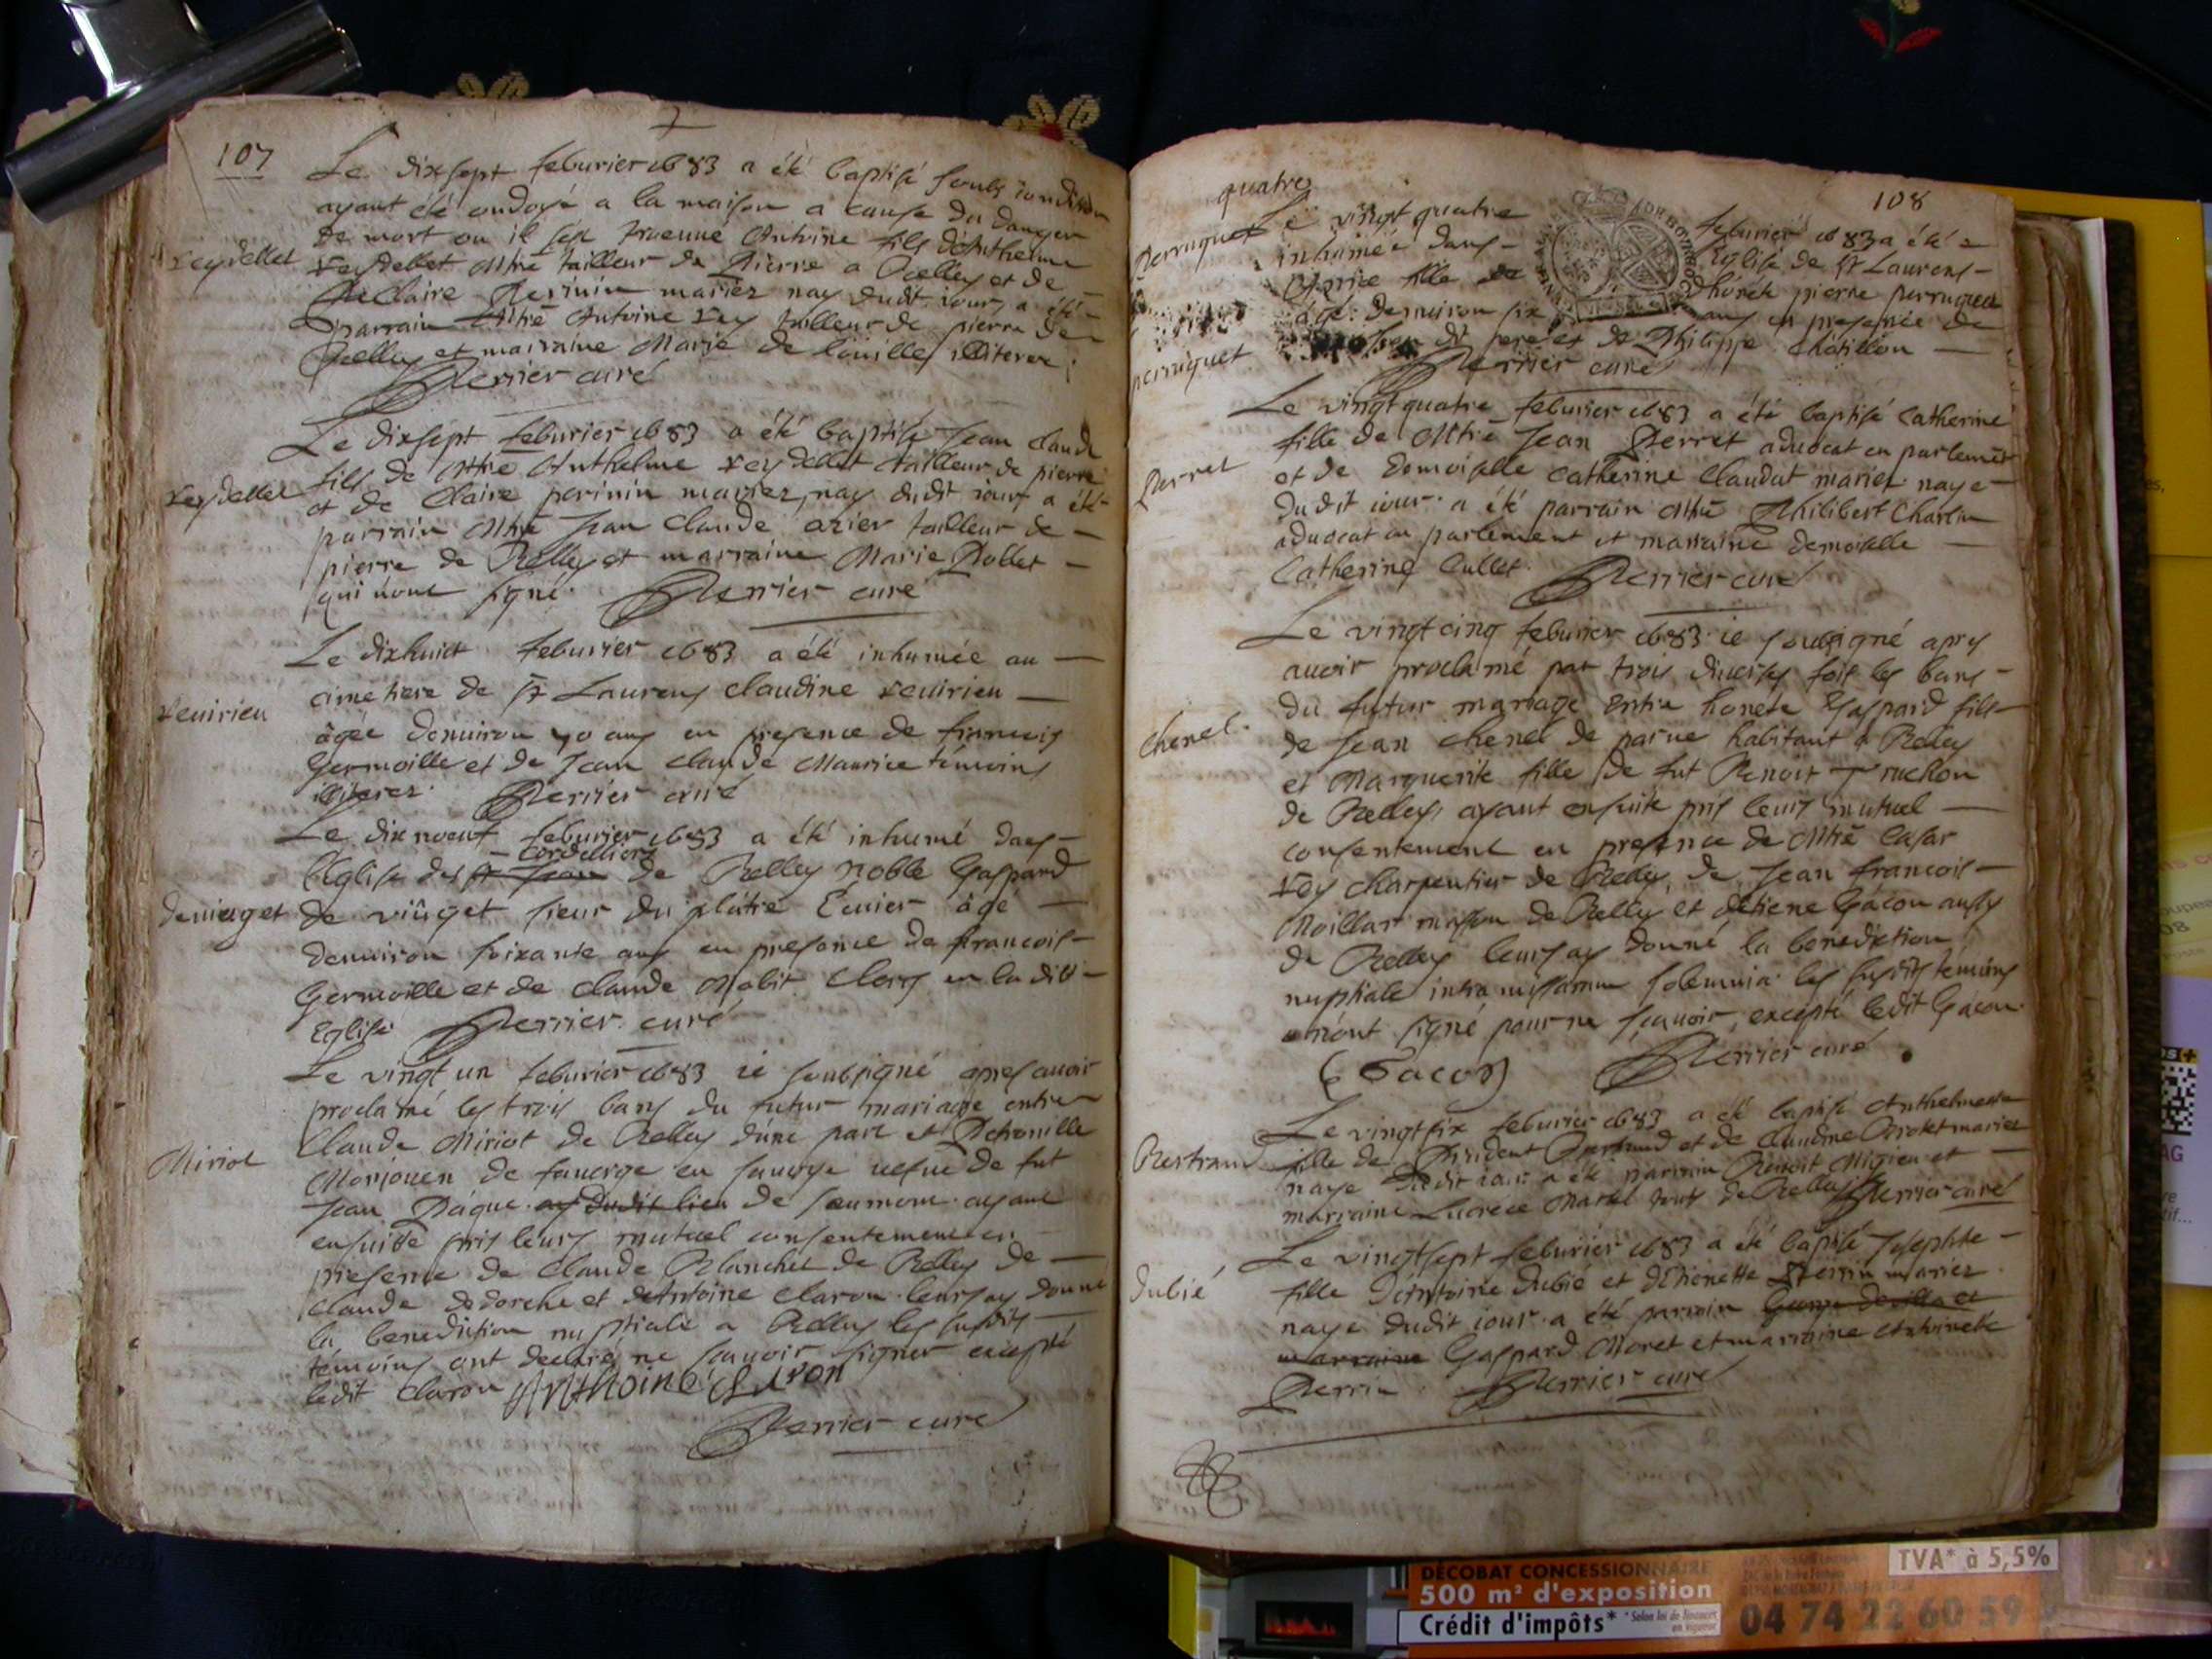 107
Le dixsept feburier 1683 a été baptisé soubs condition
ayant été ondoyé a la maison a cause du danger
de mort ou il sest trouuué Antoine fils d'Anthelme
Reydellet
Reydellet Mtre tailleur de Pierre a Belley et de
Claire Perinin mariez nay dudit iour, a été
parrain Mtre Antoine Rey tailleur de pierre de
Belley et mairaine Marie de illiterez
Perrier curé
Le dixsept feburier 1683 a été baptisé Jean Claude
fils de Mtre Anthelme Reydellet tailleur de pierre
Reydellet
et de Claire perinin mariez, nay dudit iour, a été
parrain Mtre Jean Claude azier tailleur de
pierre de Belley et marraine Marie Pollet
qui n'ont signé. Perrier curé
Le dixhuict feburier 1683 a été inhumée au
cimetiere de St Laurens Claudine Reuirieu
Reuirieu
âgée denuiron 40 ans en presence de francois
Germoille et de Jean Claude Maurice témoins
illiterez. Perrier curé
Le dix noeuf feburier 1683 a été inhumé dans
cordelliers
l'Eglise des St Jean de Belley noble Gaspard
deuiuget
de viuget sieur du plâtre Ecuier âgé
denuiron soixante ans en presence de francois
Germoille et de Claude Mabit Clercs en la dite
Eglise Perrier curé
Le vingt un feburier 1683 ie soubsigné apres auoir
proclamé les trois bans du futur mariage entre
Miriot
Claude Miriot de Belley d'une part et Petronille
Monjouen de fauerge en sauoye uefue de fut
Jean Pâque ay dudit lieu de seumont ayant
ensuite pris leurs mutuel consentement en
presence de Claude Blanchet de Belley de
Claude dedorche et d'Antoine Claron leurs ay donné
la benediction nuptiale a Belley les susdits
témoins ont declaré ne scauoir signer excepté
ledit Claron Anthoine Claron
Perrier curé
108
quatre
Perruquet
Le vingt quatre feburier 1683 a été
inhumée dans l'Eglise de St Laurens
fille de d'honete pierre perruquet
agé denuiron six ans en presence de
perruquet
son dit pere et de Philippe Châtillon
Perrier curé
Le vingt quatre feburier 1683 a été baptisé Catherine
fille de Mtre Jean Perret aduocat en parlemt
Perret
et de demoiselle Catherine Claudat mariez naye
dudit iour. a été parrain Mtre Philibert Charlin
aduocat en parlement et marraine demoiselle
Catherine Cullet. Perrier curé
Le vingt cinq feburier 1683 ie soubsigné apres
auoir proclamé par trois diuerses fois les bans
du futur mariage entre honete Gaspard fils
Chenel.
de Jean Chenel de parue habitant a Belley
et Marguerite fille de fut Benoit Truchon
de Belley, ayant ensuite pris leurs mutuel
consentement en presence de Mtre Casar
Rey charpentier de Belley, de Jean francois
Moillar masson de Belley et d'etiene Gacon aussy
de Belley leurs ay donné la benediction
nuptiale intra missarum solemnia. les susdits temoins
n'ont signé pour ne scauoir, excepté ledit Gacon.
E Gacon Perrier curé
Le vingt six feburier 1683 a été baptisé Anthelmette
Bertrand
fille de Prudent Bertrand et de Claudine Brotet mariez
naye dudit iour a été parrain Benoit Migieu et
marraine Lucrece Martel tous de Belley Perrier curé
Le vingt sept feburier 1683 a été baptisé Josephte
Dubié
fille d'Antoine Dubié et d'Etienette Perrin mariez
naye dudit iour. a été parrain George de villa et
marraine Gaspard Moret et marraine Antoinete
Perrin Perrier curé
DÉCOBAT CONCESSIONNAIRE
500 m² d'exposition
TVA* à 5,5%
Crédit d'impôts*
04 74 22 60 59